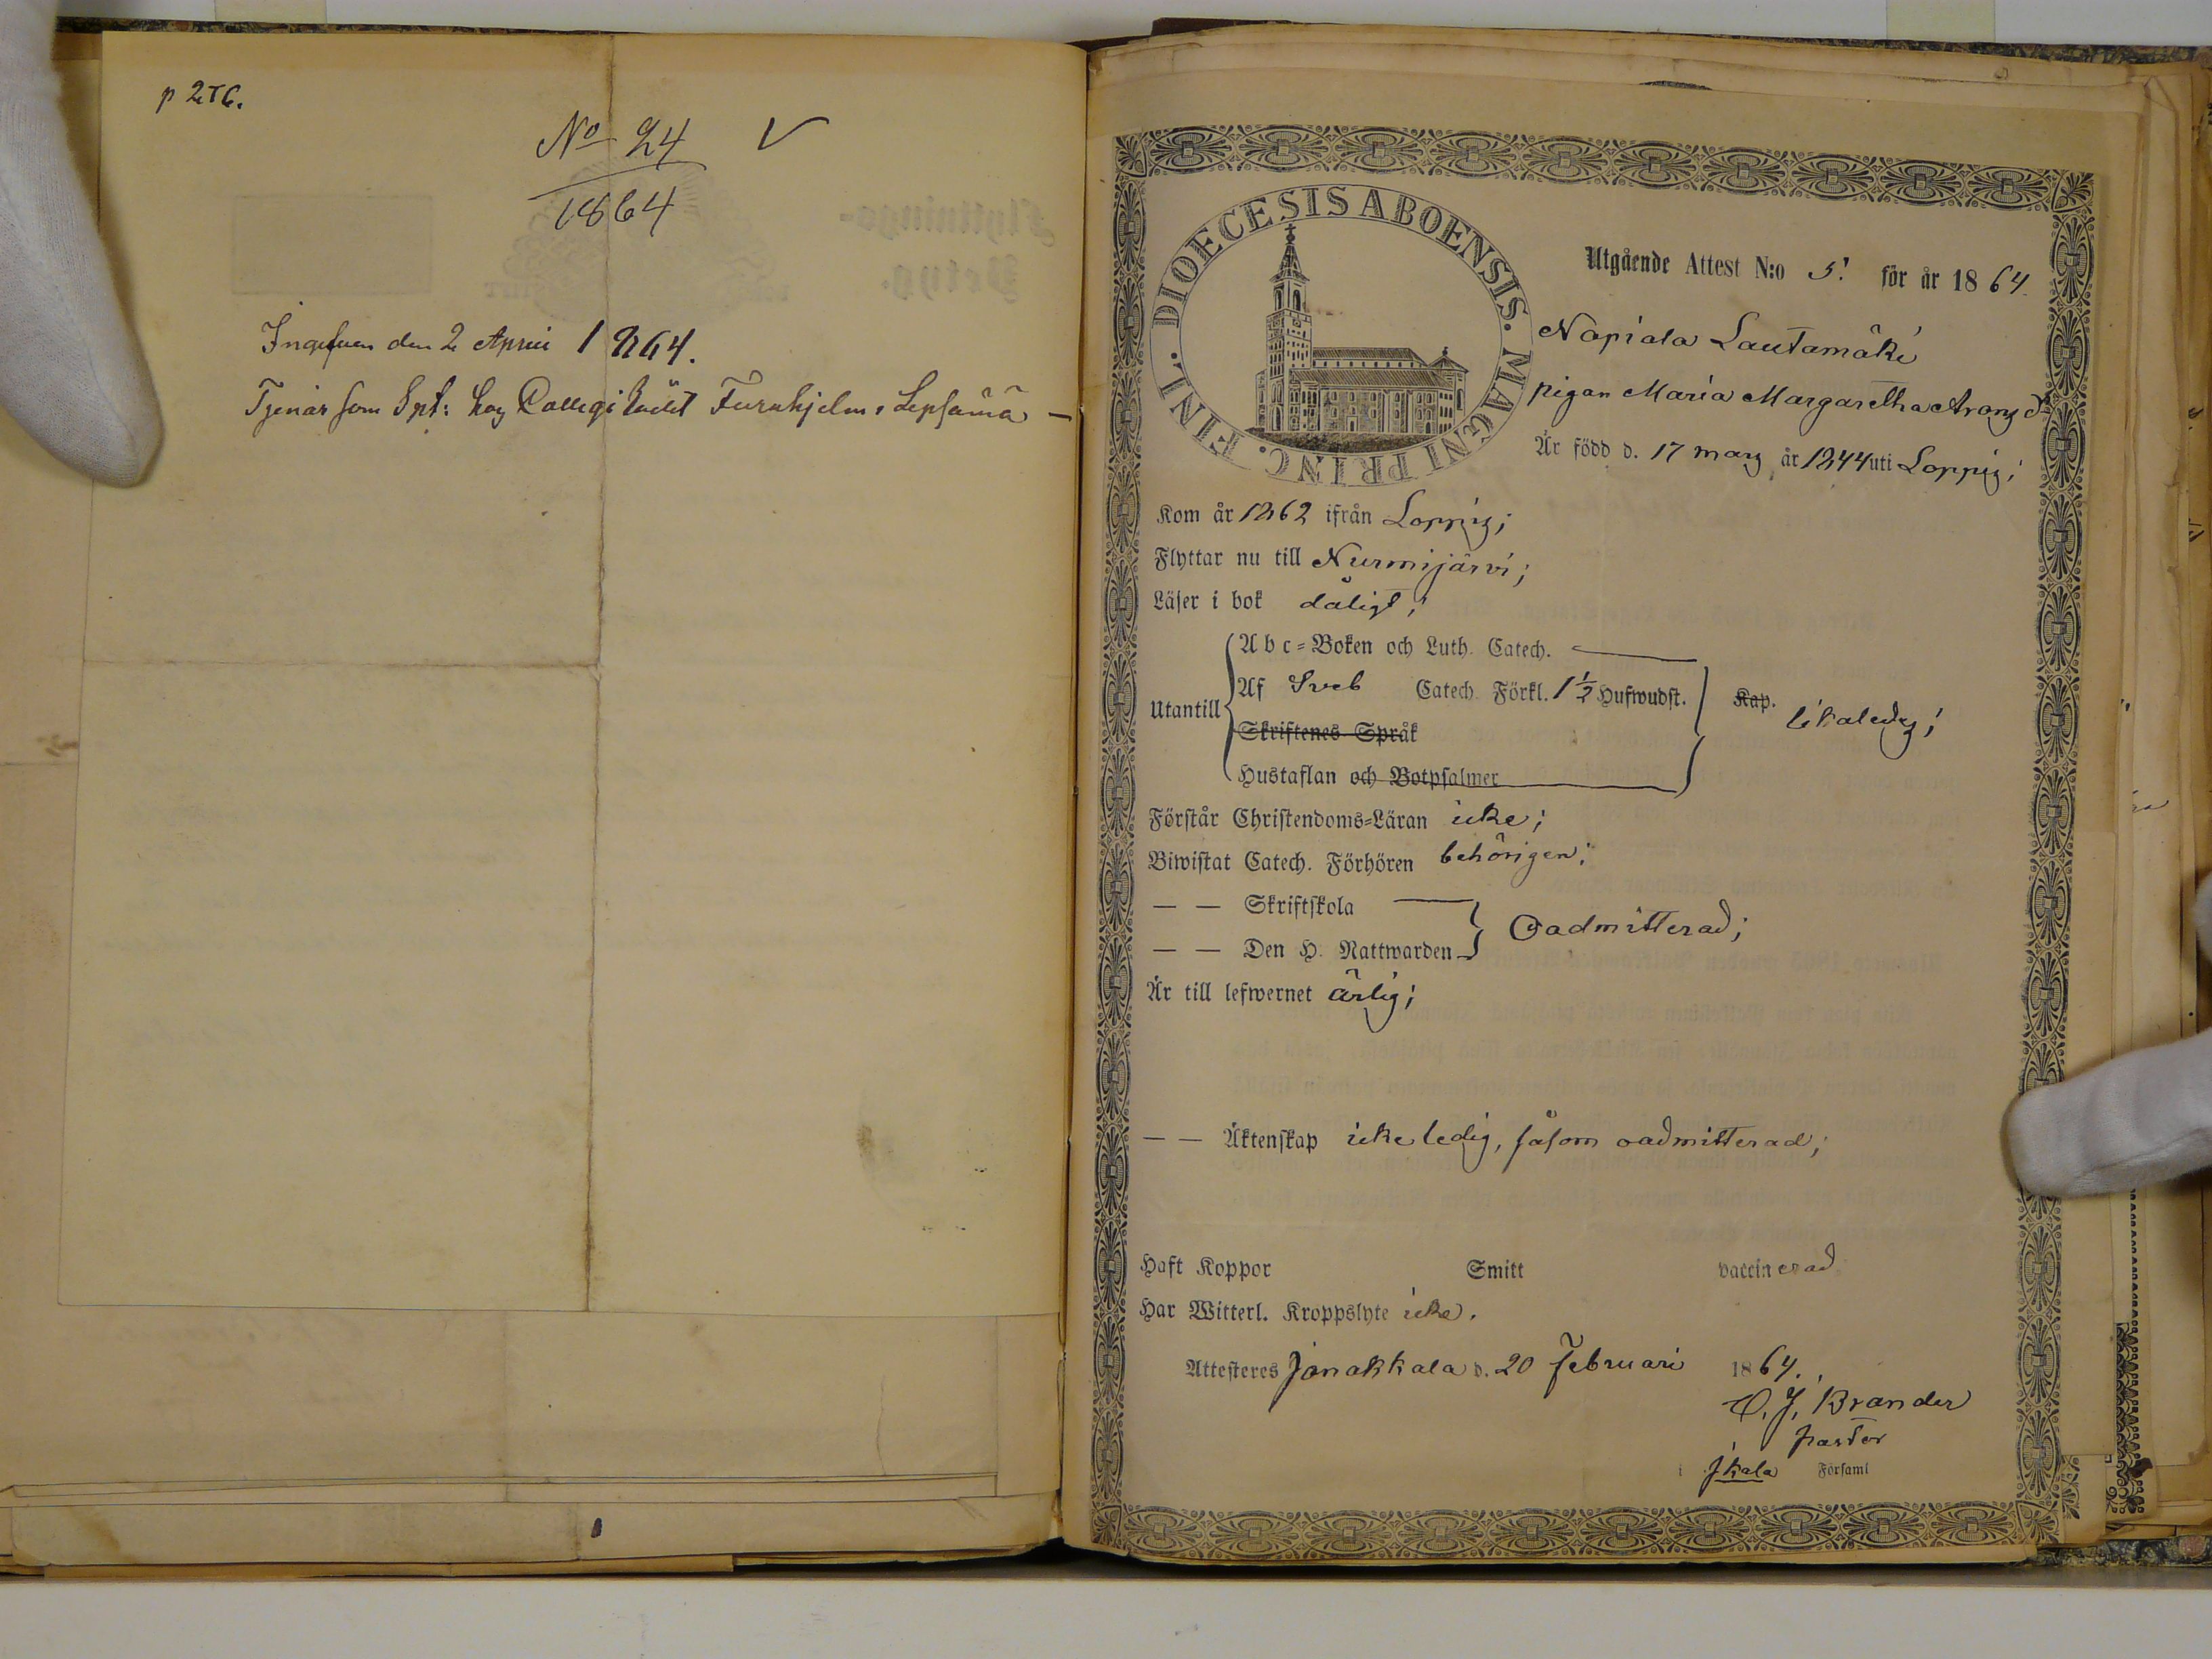 p 256.
No 24
1864
Flyttnings-
Betyg.
Ingifven den 2 April 1864.
Tjenar som Spt: hos Collegi Rådet Furuhjelm, Lepsämä —
DIOECESIS ABOENSIS. MAGNI PRINC. FINL.
Utgående Attest N:o 5. för år 1864.
Napiala Lautamäki
pigan Maria Margaretha Aronsdr
Är född d. 17 mars år 1844 uti Loppis;
Kom år 1862 ifrån Loppis;
Flyttar nu till Nurmijärvi;
Läser i bok dåligt;
Utantill
Abc-Boken och Luth. Catech.
Af Sveb Catech. Förkl. 1½ Hufwudst. Kap. likaledes;
Skriftenes Språk
Hustaflan och Botpsalmer
Förstår Christendoms-Läran icke;
Biwistat Catech. Förhören behörigen;
— — Skriftskola
— — Den H. Nattwarden Oadmitterad;
Är till lefwernet ärlig;
— — Äktenskap icke ledig, såsom oadmitterad;
Haft Koppor Smitt vaccinerad
Har Witterl. Kroppslyte icke.
Attesteres Janakkala d. 20 Februari 1864.
J. Brander
pastor
i Jkala Församl